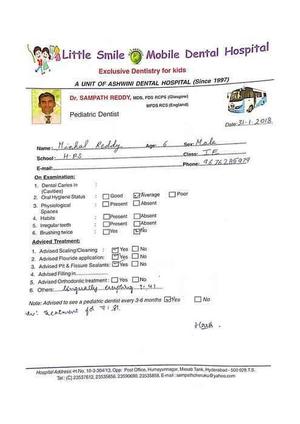 Little Smile Mobile Dental Hospital
Exclusive Dentistry for kids
A UNIT OF ASHWINI DENTAL HOSPITAL (Since 1997)
Dr. SAMPATH REDDY, MDS, FDS RCPS (Glasgow)
MFDS RCS (England)
Pediatric Dentist
Date: 31-1-2018
Name: Reddy Age: 6 Sex: Male
School: HPS Class:
E-mail: Phone:
On Examination:
1. Dental Caries in :
(Cavities)
2. Oral Hygiene Status : Good Average Poor
3. Physiological : Present Absent
Spaces
4. Habits : Present Absent
5. Irregular teeth : Present Absent
6. Brushing twice : Yes No
Advised Treatment:
1. Advised Scaling/Cleaning : Yes No
2. Advised Flouride application: Yes No
3. Advised Pit & Fissure Sealants: Yes No
4. Advised Filling in
5. Advised Orthodontic treatment : Yes No
6. Others: lingually erupting
Note: Advised to see a pediatric dentist every 3-6 months Yes No
treatment
Hospital Address: H.No. 10-3-304/13, Opp: Post Office, Humayunnagar, Masab Tank, Hyderabad - 500 028. T.S.